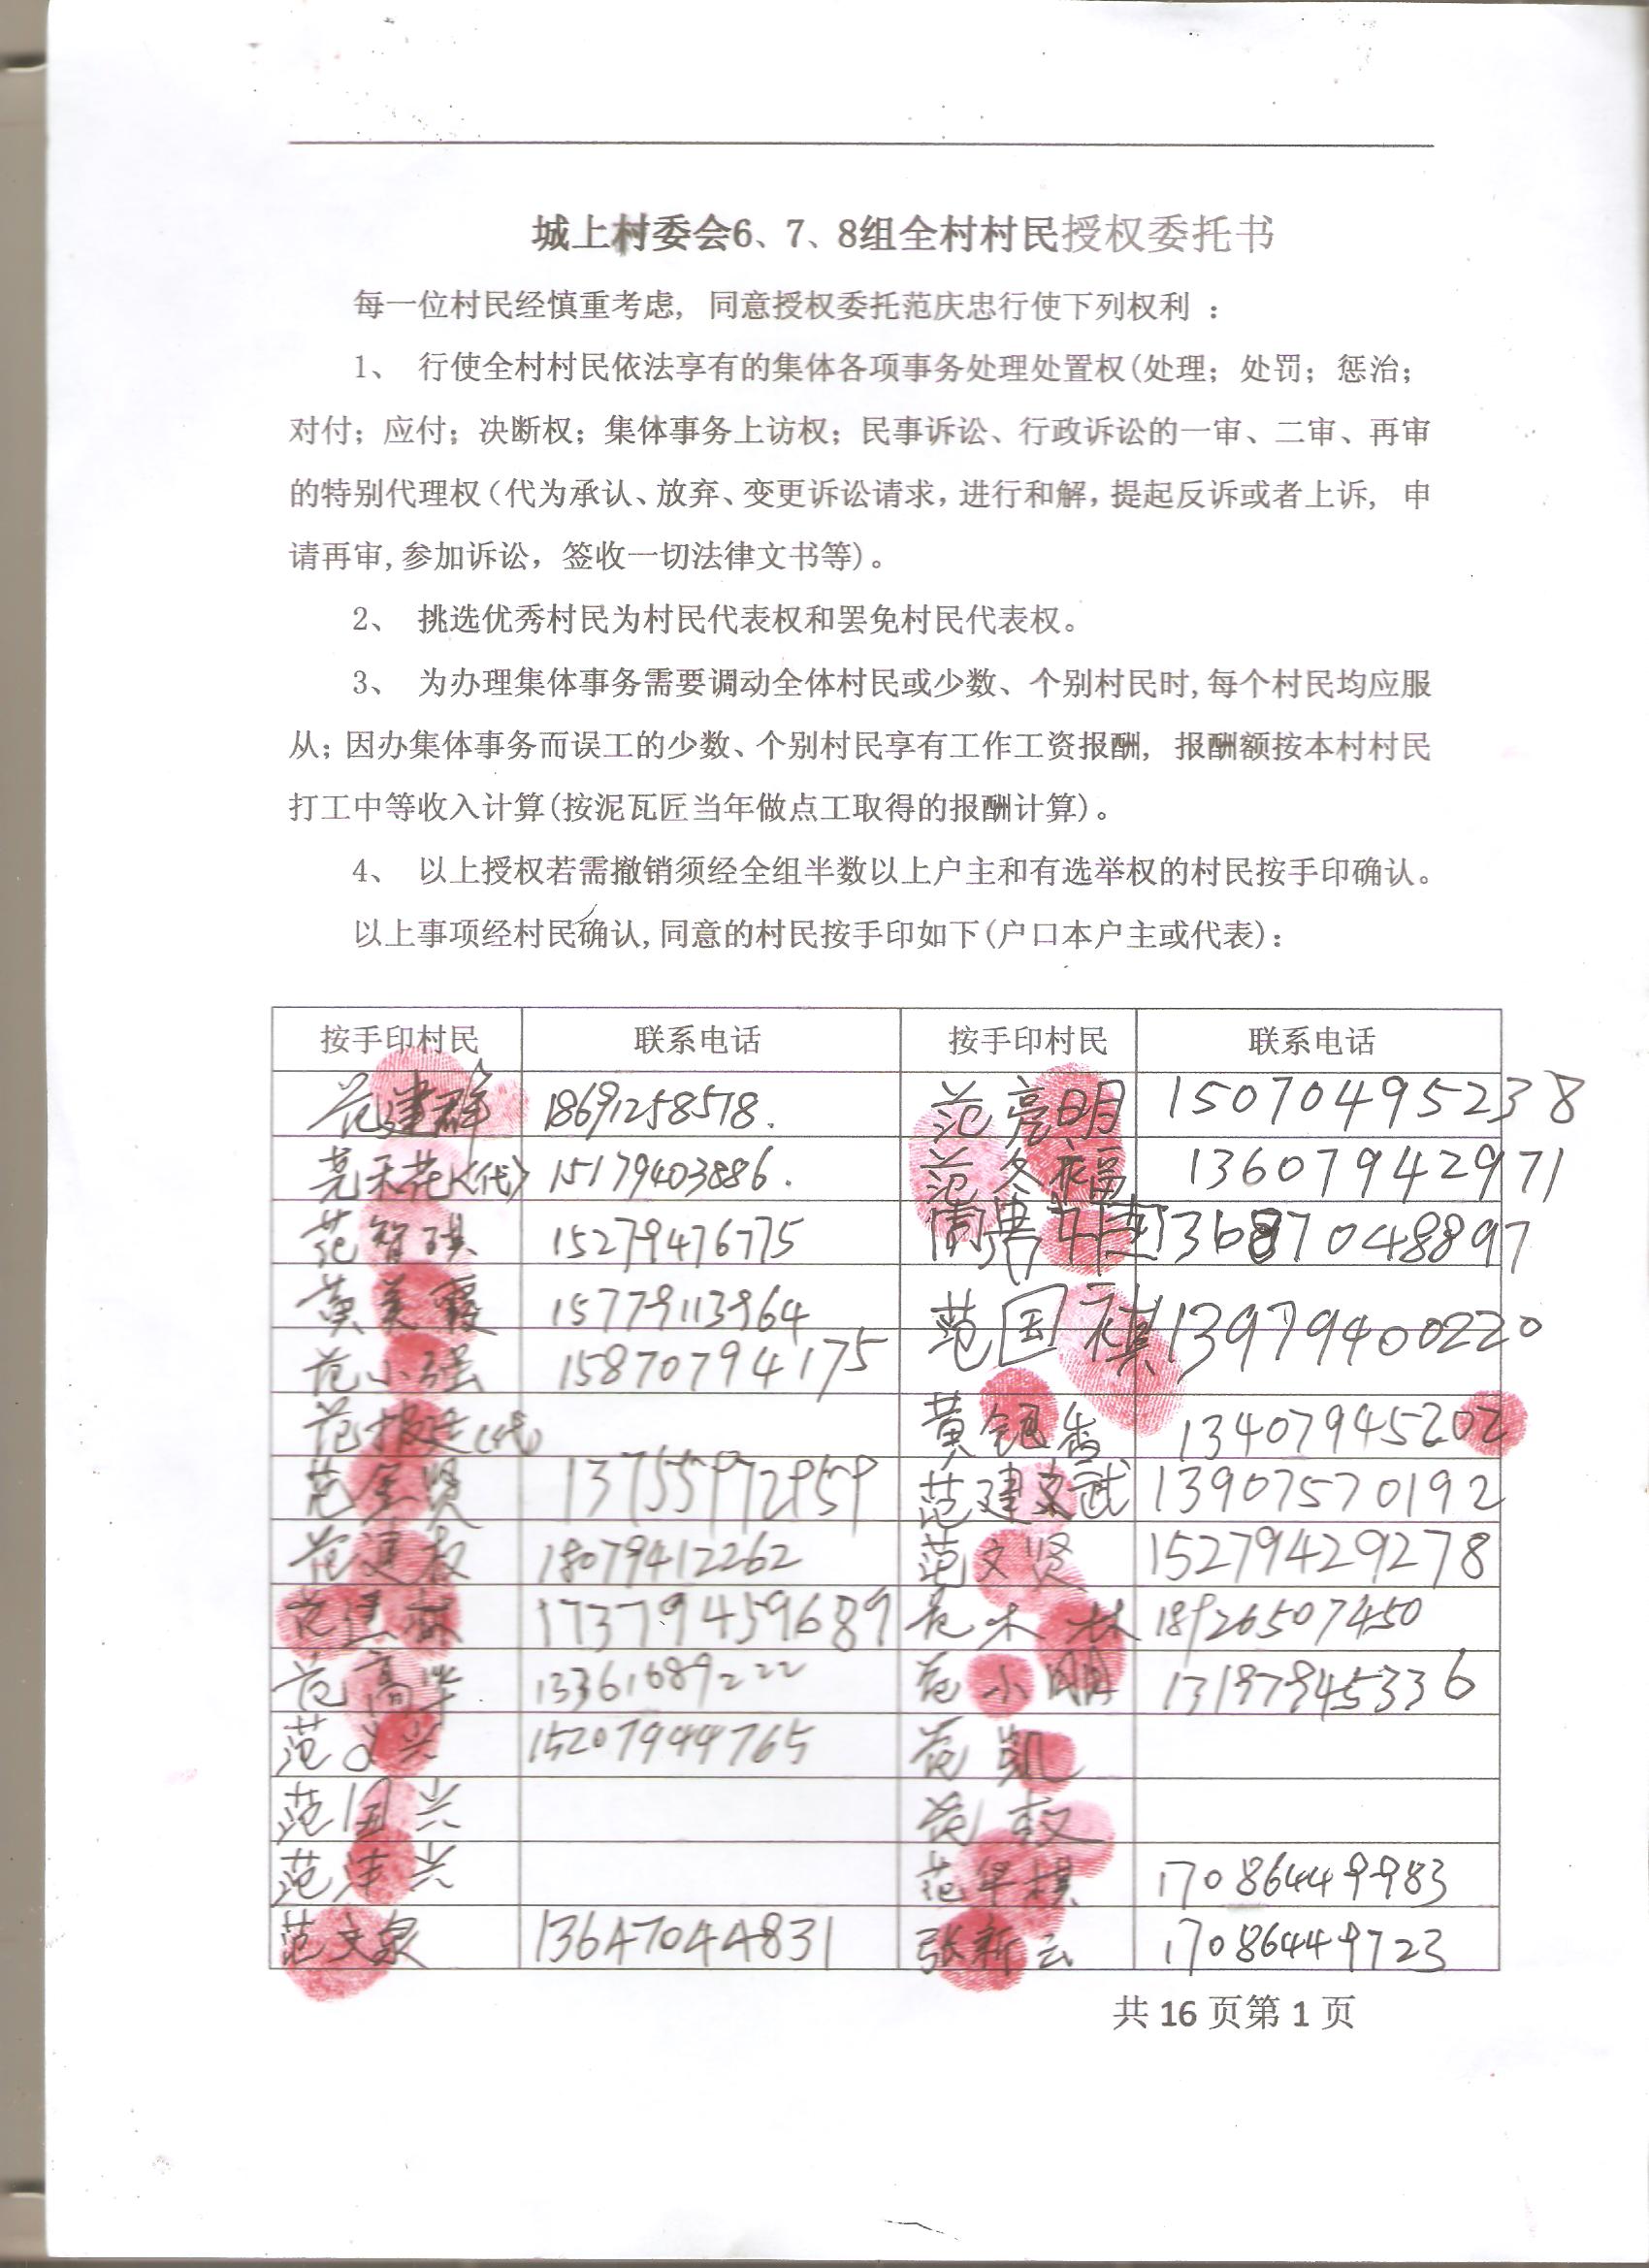 城上村委会6、7、8组全村村民授权委托书
每一位村民经慎重考虑, 同意授权委托范庆忠行使下列权利 :
1、 行使全村村民依法享有的集体各项事务处理处置权(处理; 处罚; 惩治;
对付; 应付; 决断权; 集体事务上访权; 民事诉讼、行政诉讼的一审、二审、再审
的特别代理权(代为承认、放弃、变更诉讼请求, 进行和解, 提起反诉或者上诉, 申
请再审, 参加诉讼, 签收一切法律文书等)。
2、 挑选优秀村民为村民代表权和罢免村民代表权。
3、 为办理集体事务需要调动全体村民或少数、个别村民时, 每个村民均应服
从; 因办集体事务而误工的少数、个别村民享有工作工资报酬, 报酬额按本村村民
打工中等收入计算(按泥瓦匠当年做点工取得的报酬计算)。
4、 以上授权若需撤销须经全组半数以上户主和有选举权的村民按手印确认。
以上事项经村民确认, 同意的村民按手印如下(户口本户主或代表):
按手印村民 联系电话 按手印村民 联系电话
范建群 18691258578. 范亮明 15070495238
天花(代) 15179403886. 范冬福 13607942971
范智琪 15279476775
黄美霞 15779113964 范国祺 13979400220
范小强 15870794175
范报廷(代) 黄银香 13407945202
范金贤 13755972959 范建武 13907570192
范建权 18079412262 范文贤 15279429278
范 17379459689 范木林 18926507450
范高华 13361689222 范小刚 13197945336
范义兴 15207944765 范凯
范国兴 范
范连兴 范华棋 17086449983
范文泉 13647044831 张新云 17086449723
共 16 页第 1 页